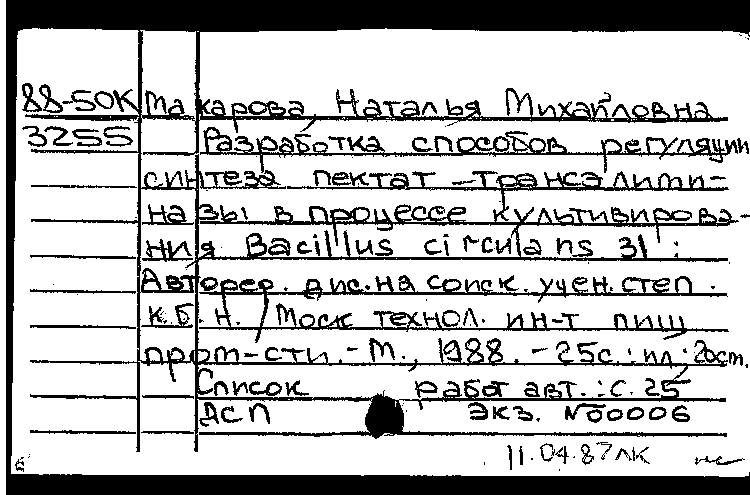 88-50К Макарова, Наталья Михайловна
3255 Разработка способов регуляции
синтеза пектат-трансэлими-
назы в процессе культивирова-
ния Bacillus circulans 31 :
Автореф. дис. на соиск. учен. степ.
к.б.н. / Моск технол. ин-т пищ
пром-сти. - М., 1988. - 25с. : ил ; 20см.
Список работ авт. : с. 25
ДСП экз. №00006
11.04.87 ЛК